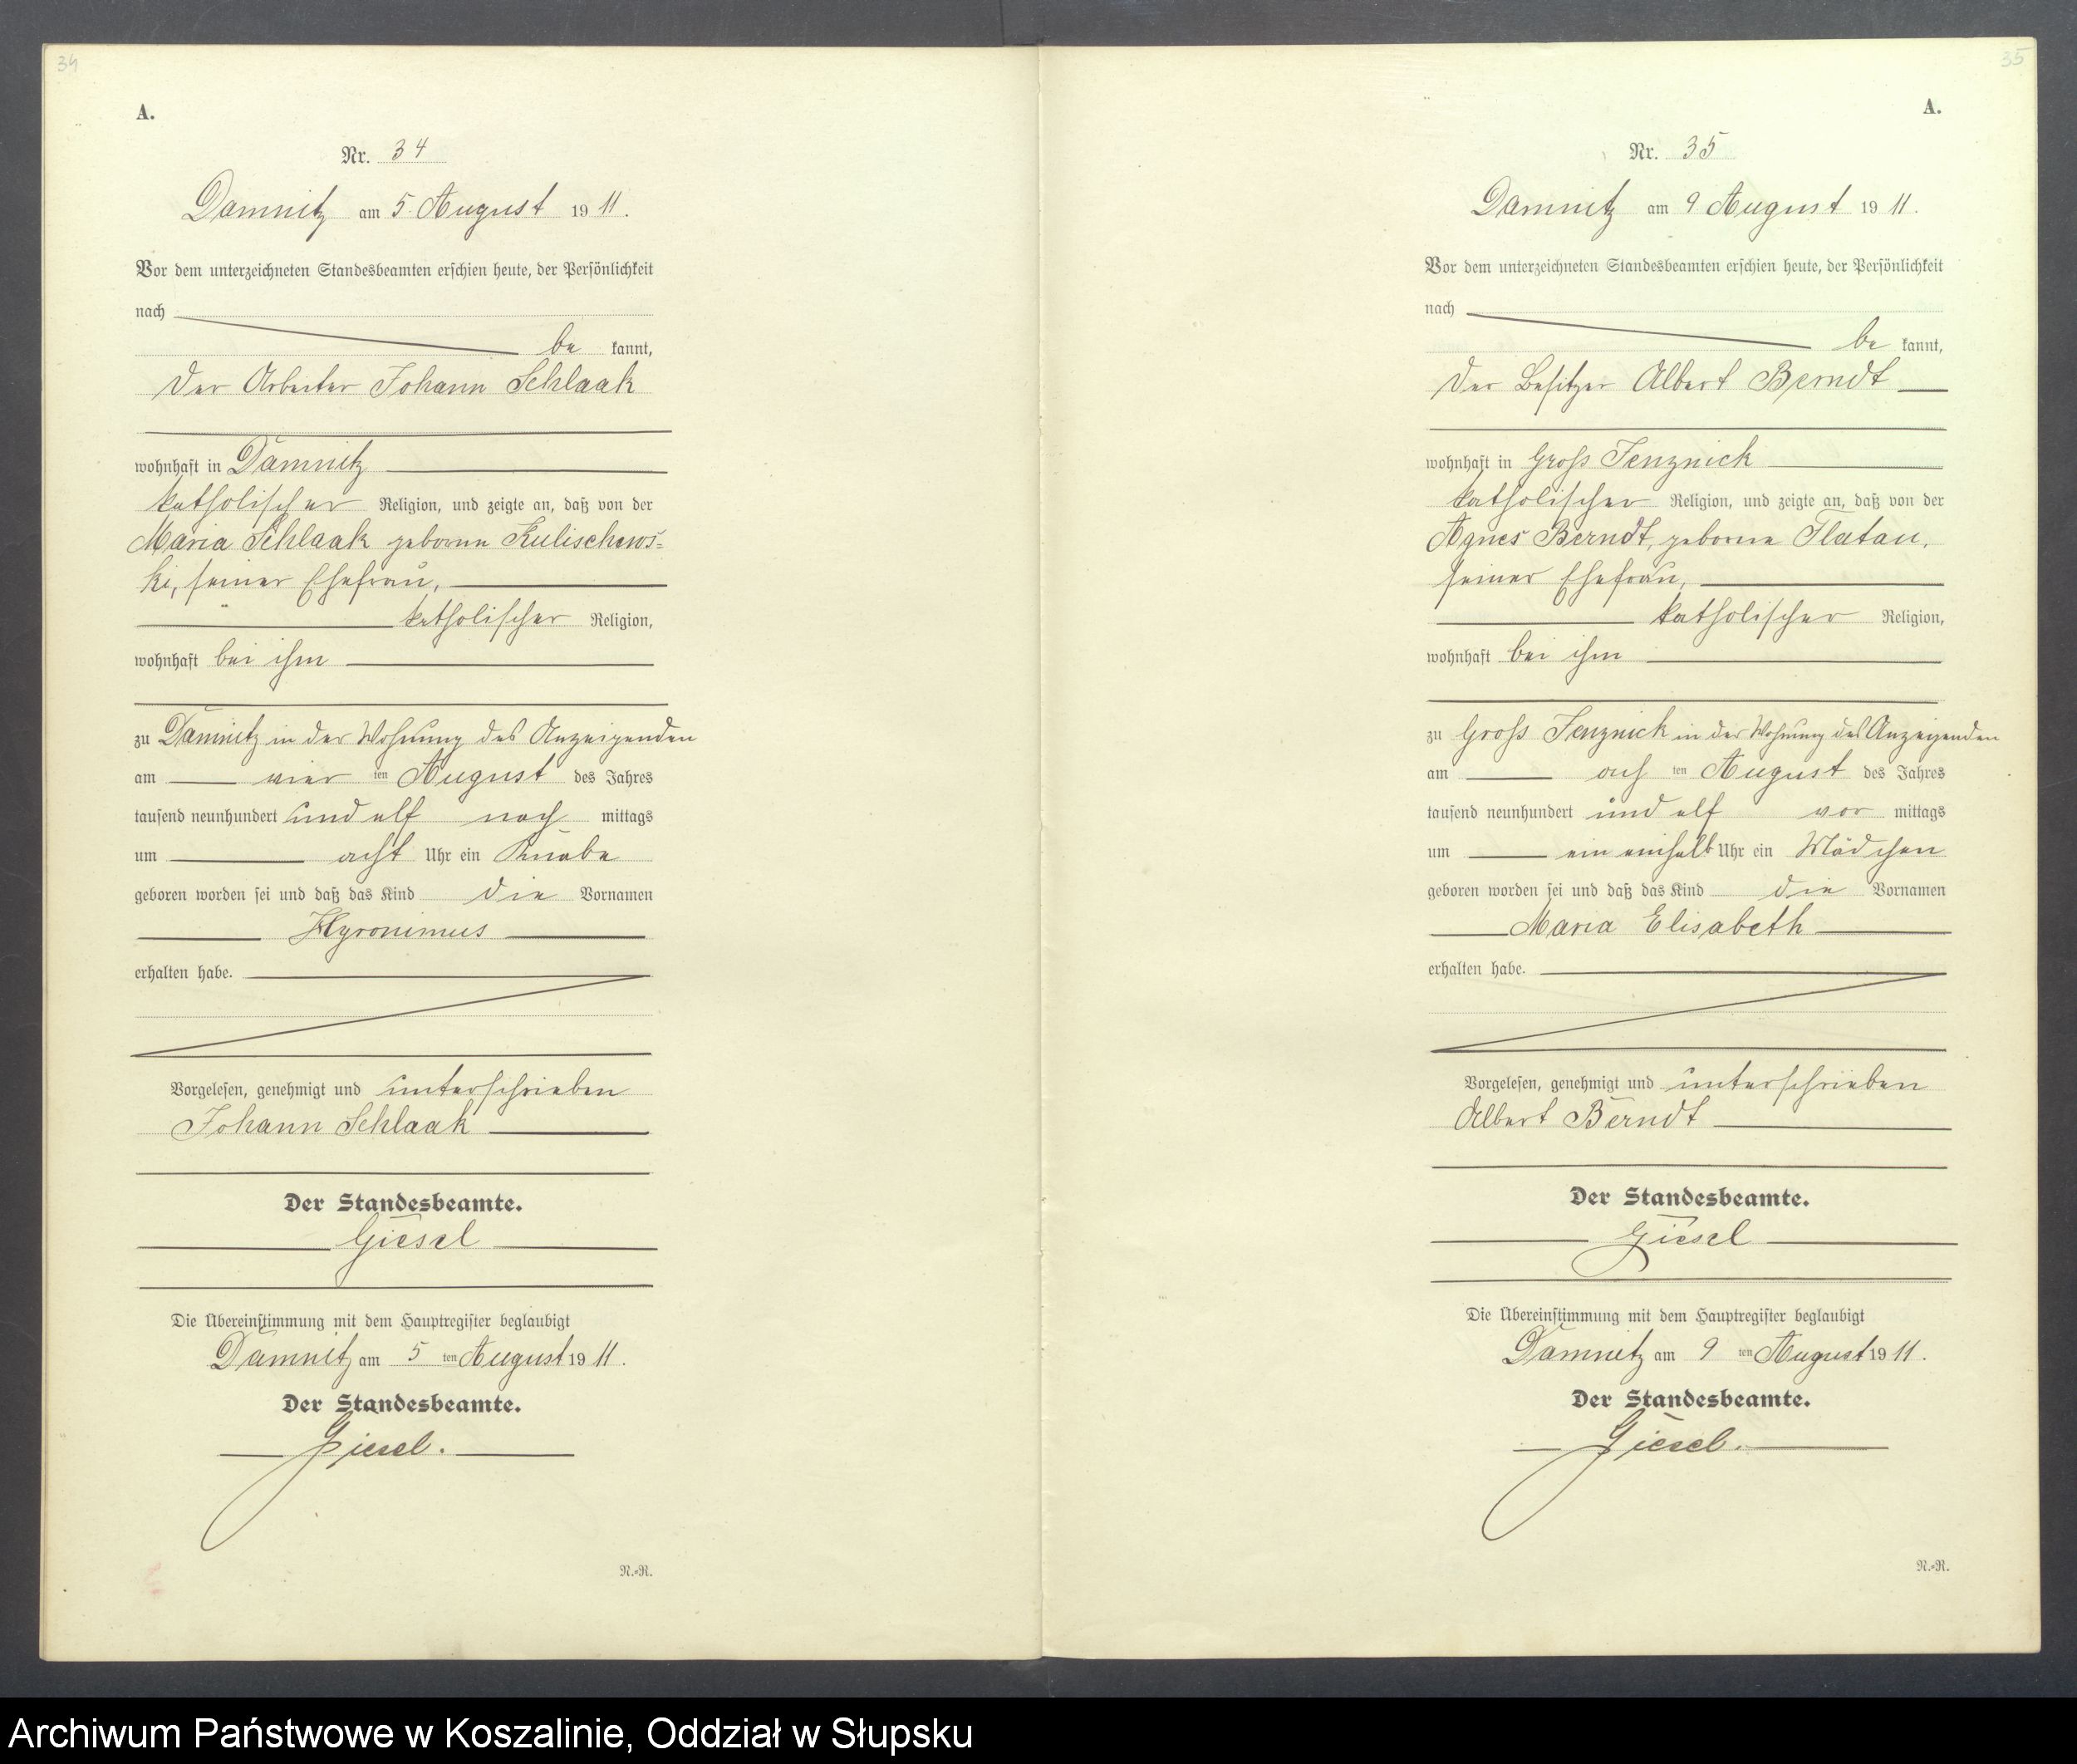 34
A.
Nr. 34
Damnitz am 5 August 19 11.
Vor dem unterzeichneten Standesbeamten erschien heute, der Persönlichkeit
nach
be kannt,
der Arbeiter Johann Schlaak
wohnhaft in Damnitz
katholischer Religion, und zeigte an, daß von der
Maria Schlaak geborne Kulischews=
ki, seiner Ehefrau,
katholischer Religion,
wohnhaft bei ihm
zu Damnitz in der Wohnung des Anzeigenden
am vier ten August des Jahres
tausend neunhundert und elf nach mittags
um acht Uhr ein Knabe
geboren worden sei und daß das Kind die Vornamen
Hyronimus
erhalten habe.
Vorgelesen, genehmigt und unterschrieben
Johann Schlaak
Der Standesbeamte.
Giesel
Die Übereinstimmung mit dem Hauptregister beglaubigt
Damnitz am 5 ten August 19 11.
Der Standesbeamte.
Giesel.
N.=R.
35
A.
Nr. 35
Damnitz am 9 August 19 11.
Vor dem unterzeichneten Standesbeamten erschien heute, der Persönlichkeit
nach
be kannt,
der Besitzer Albert Berndt
wohnhaft in Gross Jenznick
katholischer Religion, und zeigte an, daß von der
Agnes Berndt, geborne Flatau,
seiner Ehefrau,
katholischer Religion,
wohnhaft bei ihm
zu Gross Jenznick in der Wohnung des Anzeigenden
am ach ten August des Jahres
tausend neunhundert und elf vor mittags
um ein einhalb Uhr ein Mädchen
geboren worden sei und daß das Kind die Vornamen
Maria Elisabeth
erhalten habe.
Vorgelesen, genehmigt und unterschrieben
Albert Berndt
Der Standesbeamte.
Giesel
Die Übereinstimmung mit dem Hauptregister beglaubigt
Damnitz am 9 ten August 19 11.
Der Standesbeamte.
Giesel.
N.=R.
Archiwum Państwowe w Koszalinie, Oddział w Słupsku